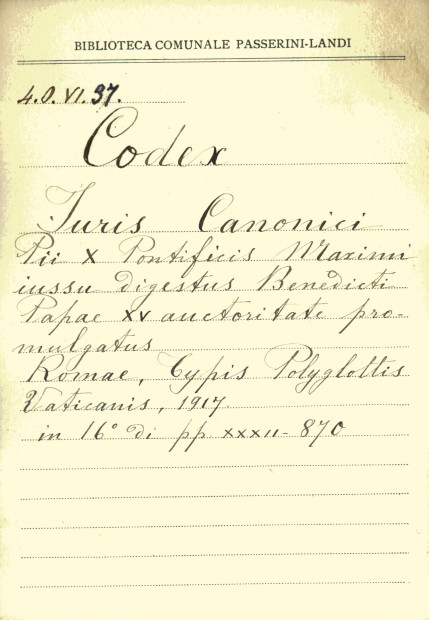 BIBLIOTECA COMUNALE PASSERINI-LANDI
4.O.VI.37.
Codex
Juris Canonici
Pii X Pontificis Maximi
iussu digestus Benedicti
Papae XV auctoritate pro-
mulgatus
Romae, Typis Polyglottis
Vaticanis, 1917.
in 16° di pp XXXII-870